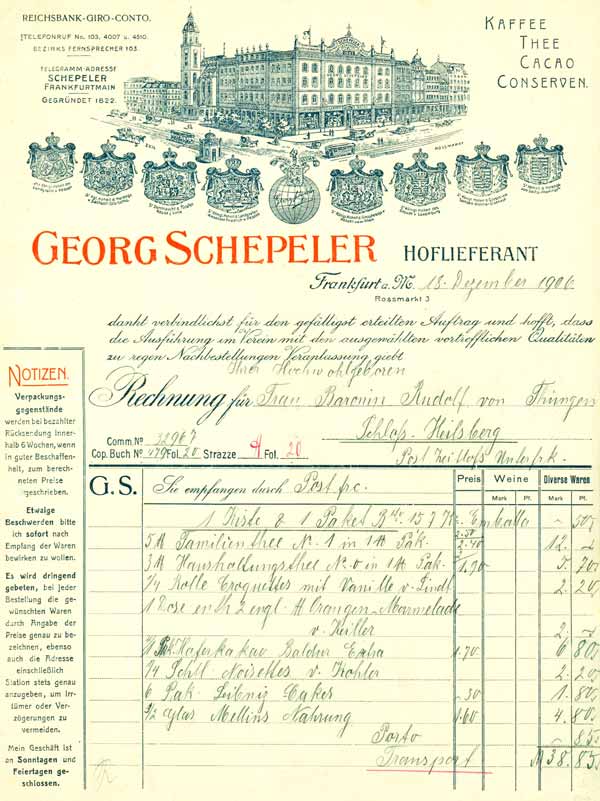 REICHSBANK-GIRO-CONTO.
TELEFONRUF No. 103, 4007 u. 4510.
BEZIRKS FERNSPRECHER 103.
TELEGRAMM-ADRESSE
SCHEPELER
FRANKFURTMAIN
GEGRÜNDET 1822.
KAFFEE
THEE
CACAO
CONSERVEN.
ZEIL
ROSSMARKT
GEORG SCHEPELER HOFLIEFERANT
Frankfurt a. M. 13. Dezember 1906
Rossmarkt 3
dankt verbindlichst für den gefälligst erteilten Auftrag und hofft, dass
die Ausführung im Verein mit den ausgewählten vortrefflichen Qualitäten
zu regen Nachbestellungen Veranlassung giebt
Ihrer Hochwohlgeboren
Rechnung für Frau Baronin Rudolf von Thüngen
Schloß Heilsberg
Post Zeitlofs Unterfrk.
Comm. No 32967
Cop. Buch No 479 Fol. 20 Strazze 4 Fol. 20
NOTIZEN.
Verpackungs-
gegenstände
werden bei bezahlter
Rücksendung inner-
halb 6 Wochen, wenn
in guter Beschaffen-
heit, zum berech-
neten Preise
gutgeschrieben.
Etwaige
Beschwerden bitte
ich sofort nach
Empfang der Waren
bewirken zu wollen.
Es wird dringend
gebeten, bei jeder
Bestellung die ge-
wünschten Waren
durch Angabe der
Preise genau zu be-
zeichnen, ebenso
auch die Adresse
einschließlich
Station stets genau
anzugeben, um Irr-
tümer oder Ver-
zögerungen zu
vermeiden.
Mein Geschäft ist
an Sonntagen und
Feiertagen ge-
schlossen.
G.S. Sie empfangen durch Post frc. Preis Weine Diverse Waren
Mark Pf. Mark Pf.
1 Kiste & 1 Paket Emballa – 50
5 Familienthee No. 1 in 1 Pak. 2.50 2.40 12. –
3 Haushaltungsthee No. 0 in 1 Pak. 1.90 5. 70
1/4 Rolle Croquettes mit Vanille v. Lindt 2. 20
1 Dose engl. Orangen-Marmelade
v. Keiller 2. –
Pak. Haferkakao Balder Extra 1.70 6 80
1/4 Schtl. Noisettes v. Kohler 2. 20
6 Pak. Leibniz Cakes –30 1. 80
3/2 Glas Mellins Nahrung 1.60 4. 80
Porto – 85
Transport M 38. 85